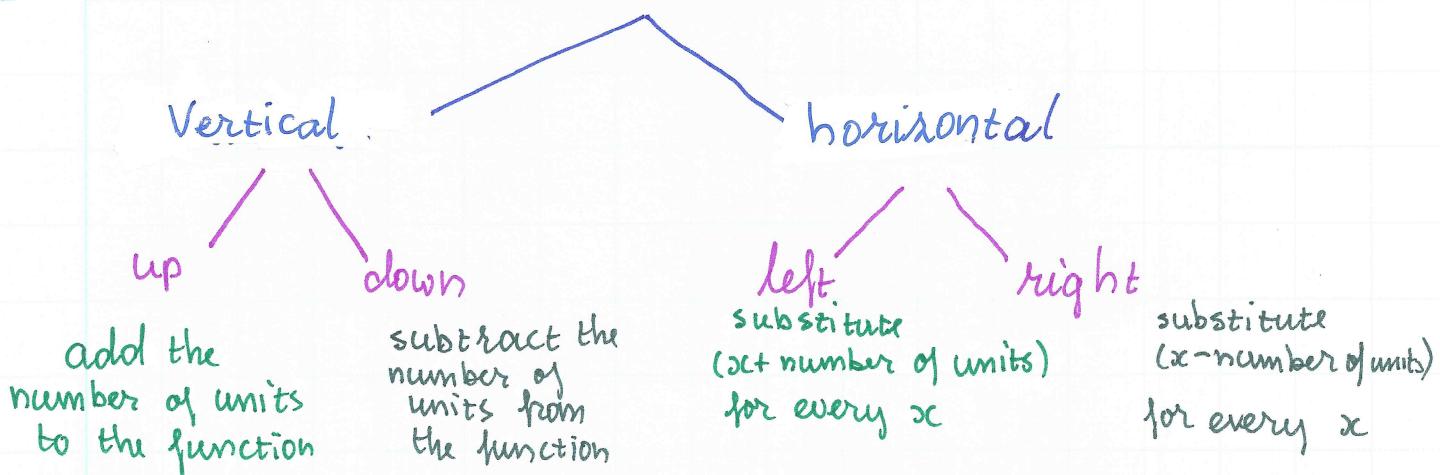 Vertical
horizontal
up
down
left
right
add the
number of units
to the function
subtract the
number of
units from
the function
substitute
(x+ number of units)
for every x
substitute
(x-number of units)
for every x